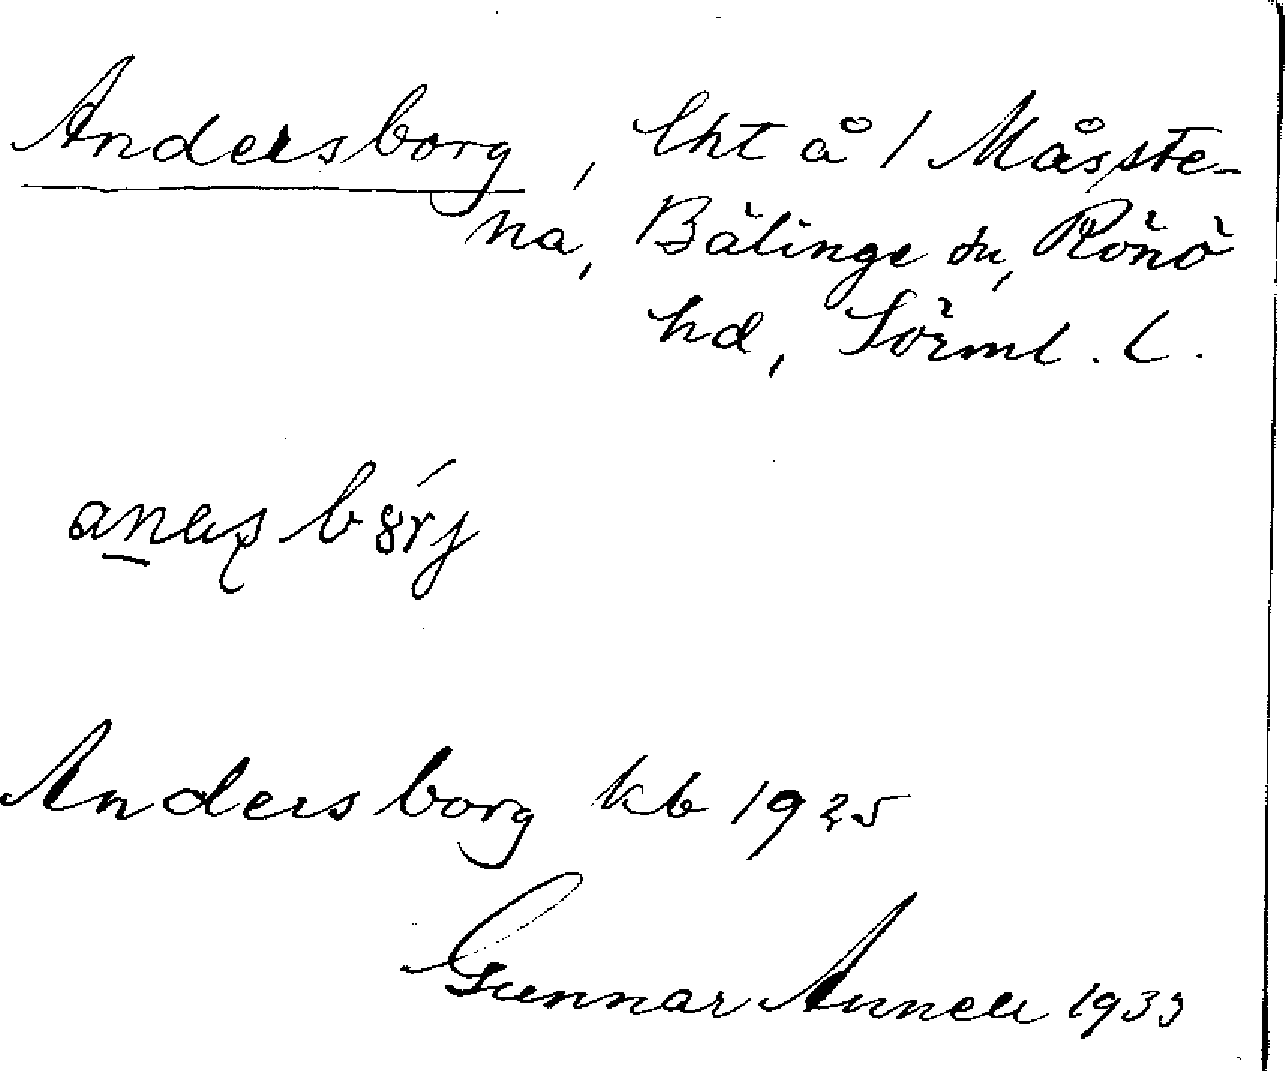 Andersborg, lht å 1 Måsste-
na, Bälinge sn, Rönö
hd, Sörml. l.
Andersborg kb 1925
Gunnar Annell 1933